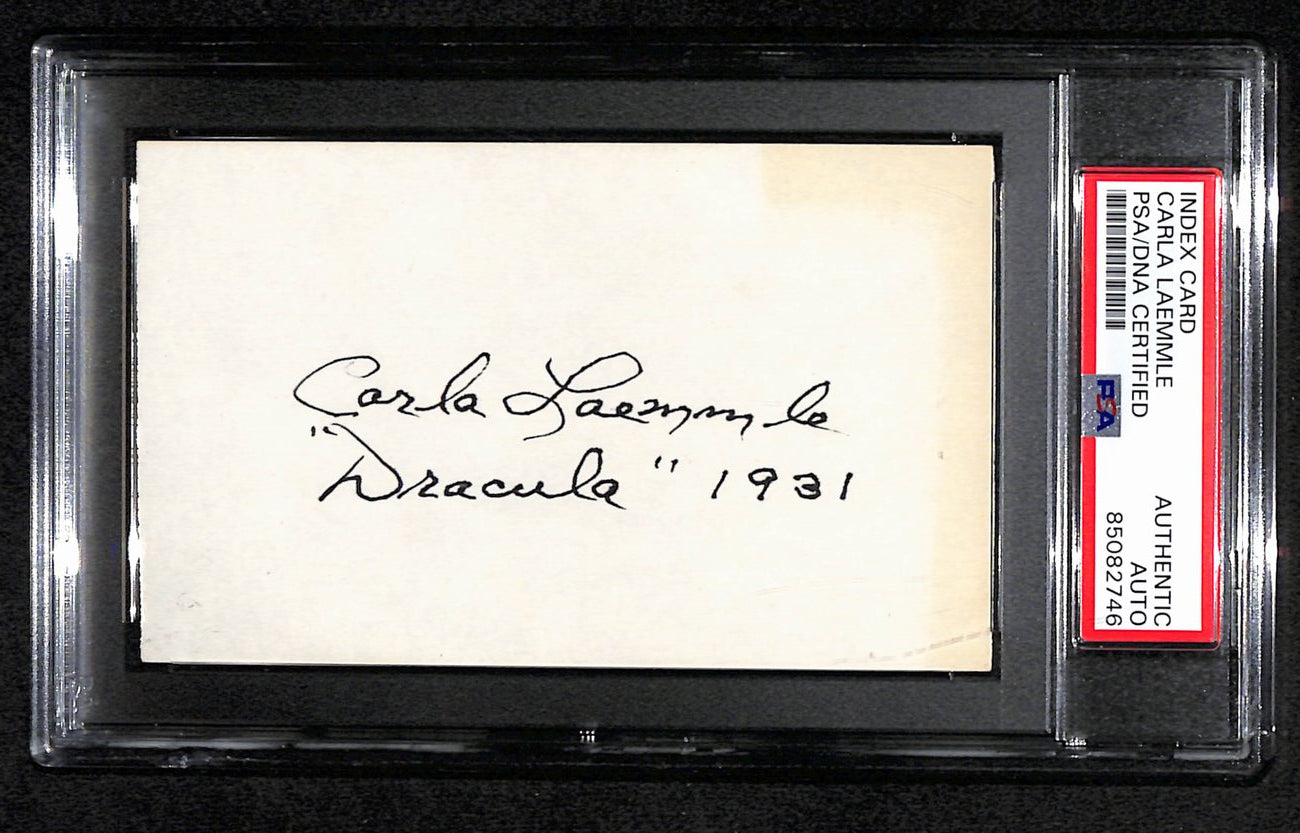 Carla Laemmle
"Dracula" 1931
INDEX CARD
CARLA LAEMMLE
PSA/DNA CERTIFIED
PSA
AUTHENTIC
AUTO
85082746